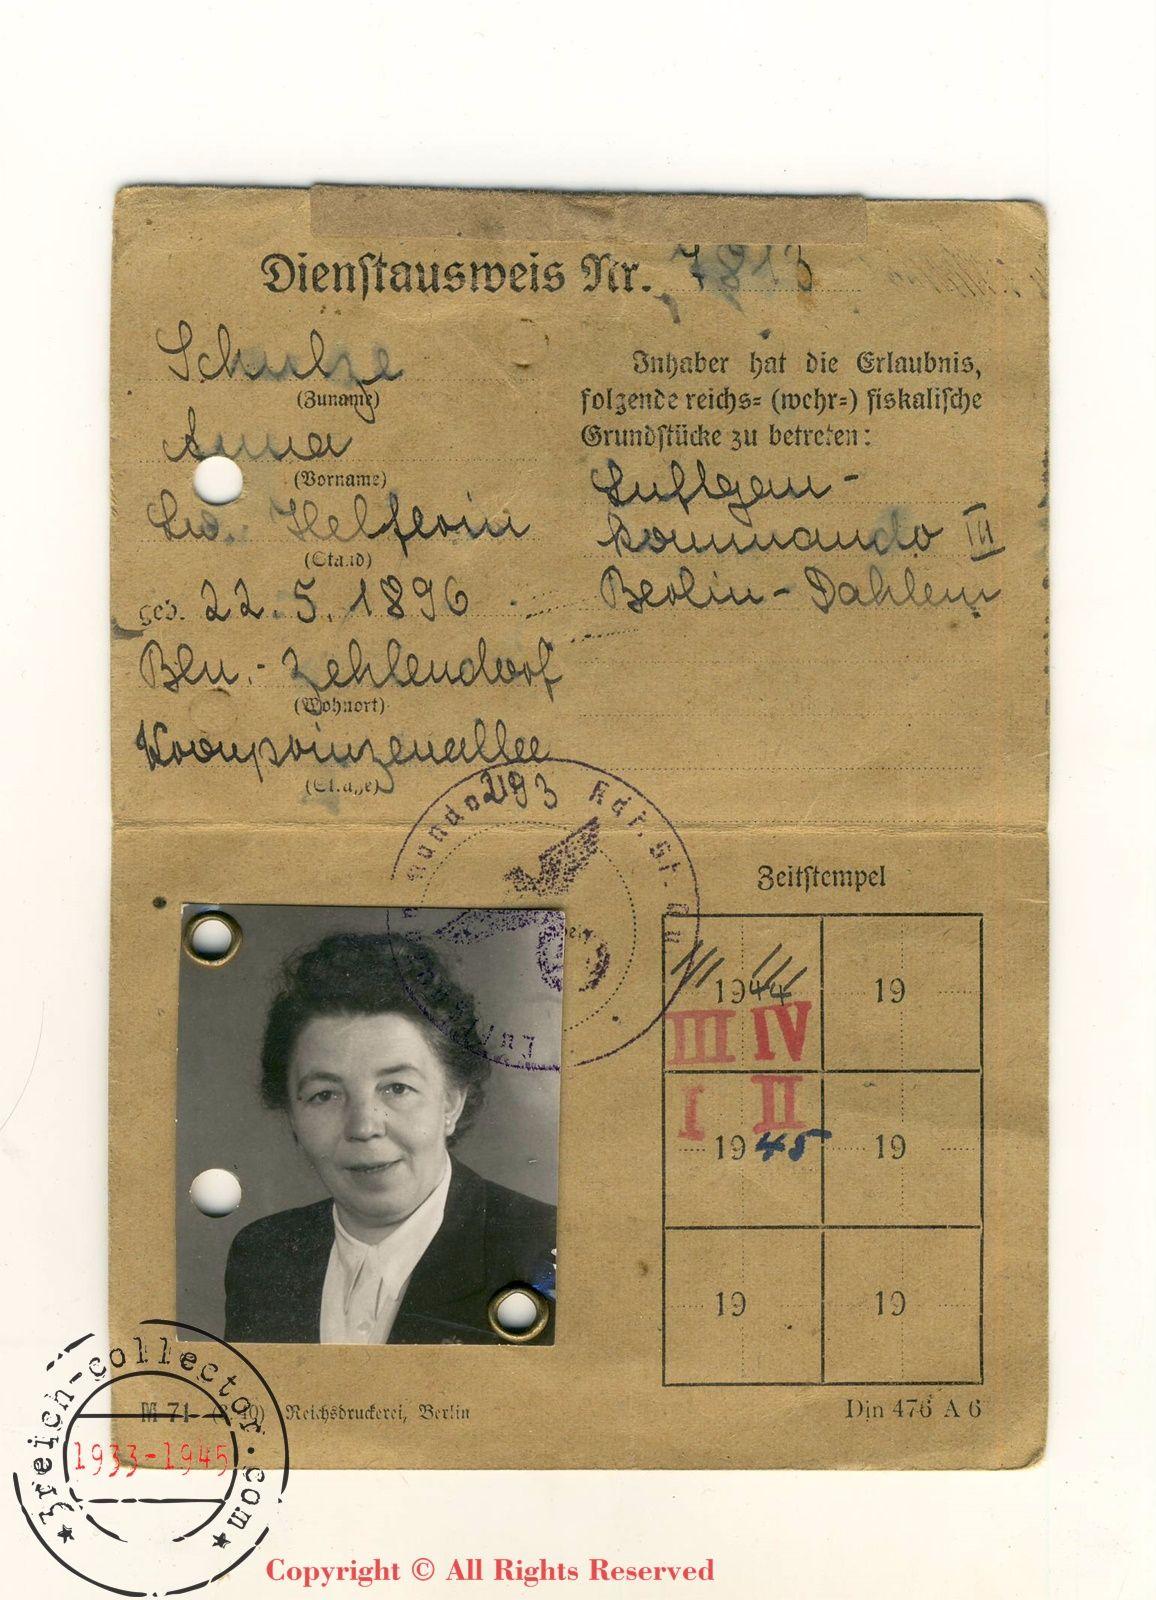 Dienstausweis Nr. 7813
Schulze
(Zuname)
Anna
(Vorname)
Lw. Helferin
(Stand)
geb. 22. 5. 1896
Bln.- Zehlendorf
(Wohnort)
Kronprinzenallee
(Straße)
293
Inhaber hat die Erlaubnis,
folgende reichs= (wehr=) fiskalische
Grundstücke zu betreten:
Luftgau-
kommando III
Berlin-Dahlem
Kdt. St. Qu
Luftgau
mando
Zeitstempel
1944
19
III IV
I II
1945
19
19
19
M 71 (3. 40) Reichsdruckerei, Berlin
Din 476 A 6
3reich-collector.com
1933-1945
Copyright © All Rights Reserved